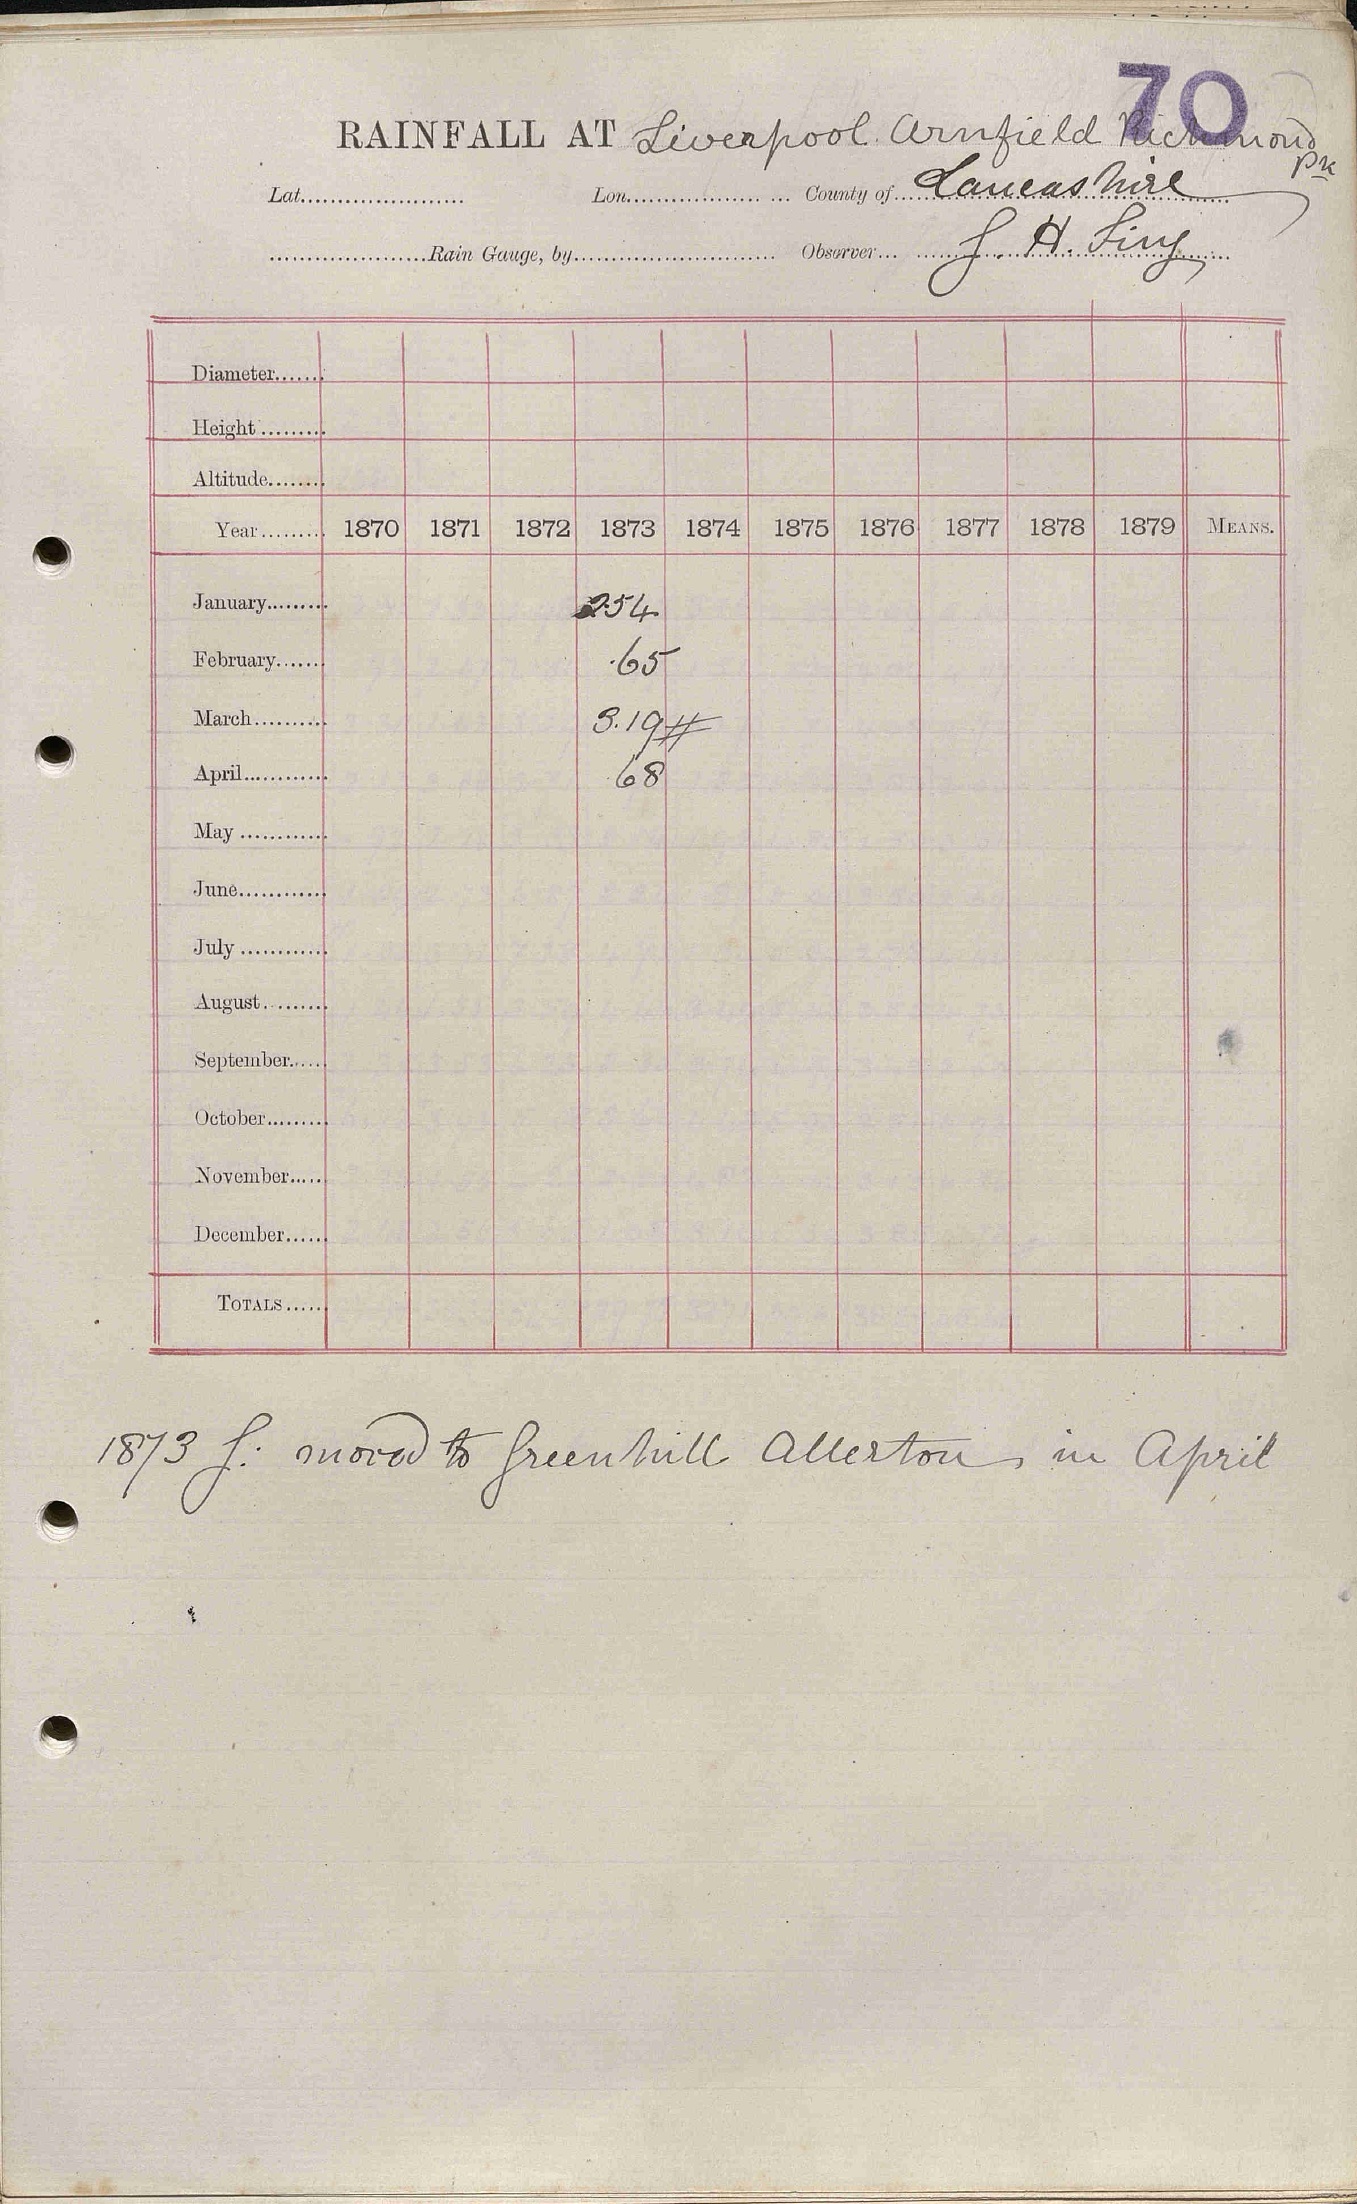 70
RAINFALL AT Liverpool. Arnfield Richmond Pk
Lat...................... Lon.................. ... County of....Lancashire
......................Rain Gauge, by........................... Observer... J. H.
Diameter.......
Height .........
Altitude........
Year......... 1870 1871 1872 1873 1874 1875 1876 1877 1878 1879 MEANS.
January......... 2.54
February....... .65
March.......... 3.19 #
April............ .68
May ............
June............
July ............
August.........
September......
October.........
November.....
December......
TOTALS......
1873 moved to Greenhill Allerton in April